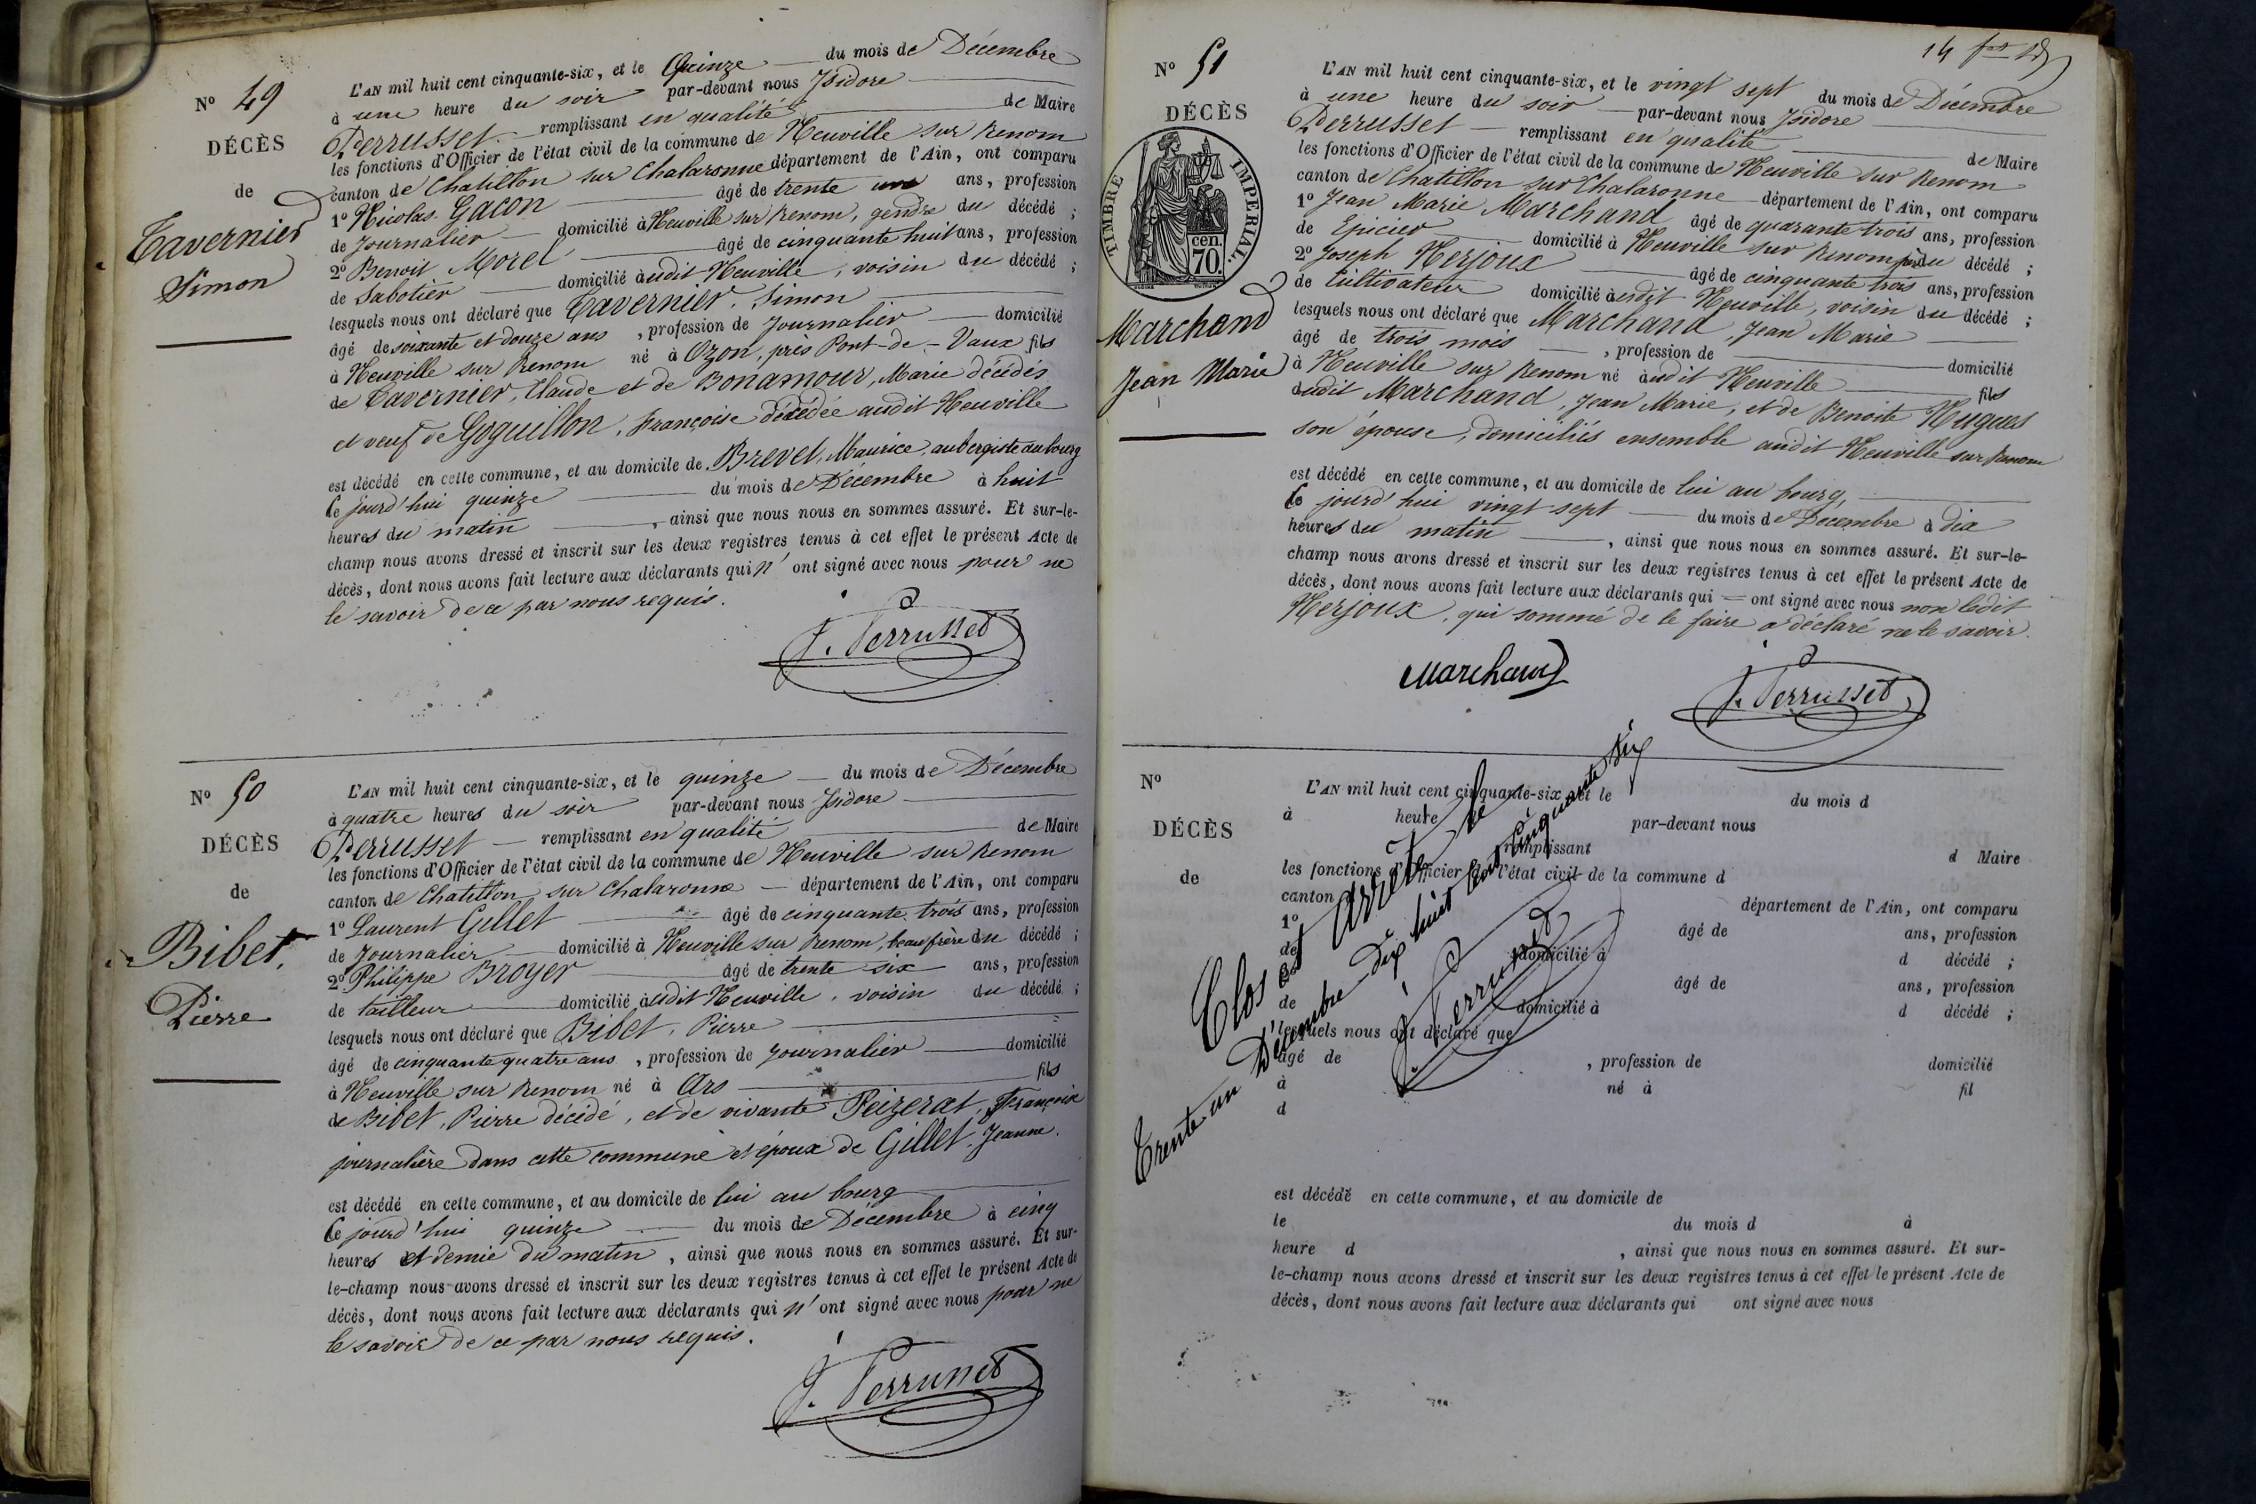 N° 49
DÉCÈS
de
Tavernier
Simon
L'AN mil huit cent cinquante-six, et le Quinze du mois de Décembre
à une heure du soir par-devant nous Isidore
Perrusset remplissant en qualité de Maire
les fonctions d'Officier de l'état civil de la commune de Neuville sur Renom
canton de Chatillon sur Chalaronne département de l'Ain, ont comparu
1° Nicolas Gacon âgé de trente un ans, profession
de Journalier domicilié à Neuville sur Renom, gendre du décédé ;
2° Benoit Morel âgé de cinquante huit ans, profession
de Sabotier domicilié à udit Neuville, voisin du décédé ;
lesquels nous ont déclaré que Tavernier, Simon
âgé de soixante et douze ans, profession de Journalier domicilié
à Neuville sur Renom né à Ozon, près Pont-de-Vaux fils
de Tavernier, Claude et de Bonamour, Marie décédés
et veuf de Goguillon, Françoise décédée audit Neuville
est décédé en cette commune, et au domicile de Brevet, Maurice, aubergiste au bourg
Ce jourd'hui quinze du mois de Décembre à huit
heures du matin, ainsi que nous nous en sommes assuré. Et sur-le-
champ nous avons dressé et inscrit sur les deux registres tenus à cet effet le présent Acte de
décès, dont nous avons fait lecture aux déclarants qui n'ont signé avec nous pour ne
le savoir de ce par nous requis.
J. Perrusset
N° 50
DÉCÈS
de
Bibet,
Pierre
L'AN mil huit cent cinquante-six, et le quinze du mois de Décembre
à quatre heures du soir par-devant nous Isidore
Perrusset remplissant en qualité de Maire
les fonctions d'Officier de l'état civil de la commune de Neuville sur Renom
canton de Chatillon sur Chalaronne département de l'Ain, ont comparu
1° Laurent Gillet âgé de cinquante trois ans, profession
de Journalier domicilié à Neuville sur Renom, beau frère du décédé ;
2° Philippe Broyer âgé de trente six ans, profession
de tailleur domicilié à udit Neuville, voisin du décédé ;
lesquels nous ont déclaré que Bibet, Pierre
âgé de cinquante quatre ans, profession de Journalier domicilié
à Neuville sur Renom né à Ars fils
de Bibet, Pierre décédé, et de vivante Peizerat, Françoise
journalière dans cette commune et époux de Gillet, Jeanne.
est décédé en cette commune, et au domicile de lui au bourg
Ce jourd'hui quinze du mois de Décembre à cinq
heures et demie du matin, ainsi que nous nous en sommes assuré. Et sur-
le-champ nous avons dressé et inscrit sur les deux registres tenus à cet effet le présent Acte de
décès, dont nous avons fait lecture aux déclarants qui n'ont signé avec nous pour ne
le savoir de ce par nous requis.
J. Perrusset
14
N° 51
DÉCÈS
TIMBRE IMPÉRIAL.
70 cen.
Marchand
Jean Marie
L'AN mil huit cent cinquante-six, et le vingt sept du mois de Décembre
à une heure du soir par-devant nous Isidore
Perrusset remplissant en qualité de Maire
les fonctions d'Officier de l'état civil de la commune de Neuville sur Renom
canton de Chatillon sur Chalaronne département de l'Ain, ont comparu
1° Jean Marie Marchand âgé de quarante trois ans, profession
de Epicier domicilié à Neuville sur Renom père du décédé ;
2° Joseph Herjoux âgé de cinquante trois ans, profession
de Cultivateur domicilié à udit Neuville, voisin du décédé ;
lesquels nous ont déclaré que Marchand, Jean Marie
âgé de trois mois, profession de domicilié
à Neuville sur Renom né à udit Neuville fils
dudit Marchand, Jean Marie, et de Benoite Hugues
son épouse, domiciliés ensemble audit Neuville sur Renom
est décédé en cette commune, et au domicile de lui au bourg,
Ce jourd'hui vingt sept du mois de Décembre à dix
heures du matin, ainsi que nous nous en sommes assuré. Et sur-le-
champ nous avons dressé et inscrit sur les deux registres tenus à cet effet le présent Acte de
décès, dont nous avons fait lecture aux déclarants qui ont signé avec nous non ledit
Herjoux, qui sommé de le faire a déclaré ne le savoir.
Marchand
J. Perrusset
N°
DÉCÈS
de
L'AN mil huit cent cinquante-six, et le du mois d
à heure par-devant nous
remplissant d Maire
les fonctions d'Officier de l'état civil de la commune d
canton département de l'Ain, ont comparu
1° âgé de ans, profession
de domicilié à d décédé ;
2° âgé de ans, profession
de domicilié à d décédé ;
lesquels nous ont déclaré que
âgé de , profession de domicilié
à né à fil
d
est décédé en cette commune, et au domicile de
le du mois d à
heure d , ainsi que nous nous en sommes assuré. Et sur-
le-champ nous avons dressé et inscrit sur les deux registres tenus à cet effet le présent Acte de
décès, dont nous avons fait lecture aux déclarants qui ont signé avec nous
Clos et Arrêté le
Trente un Décembre dix huit cent cinquante six
J. Perrusset